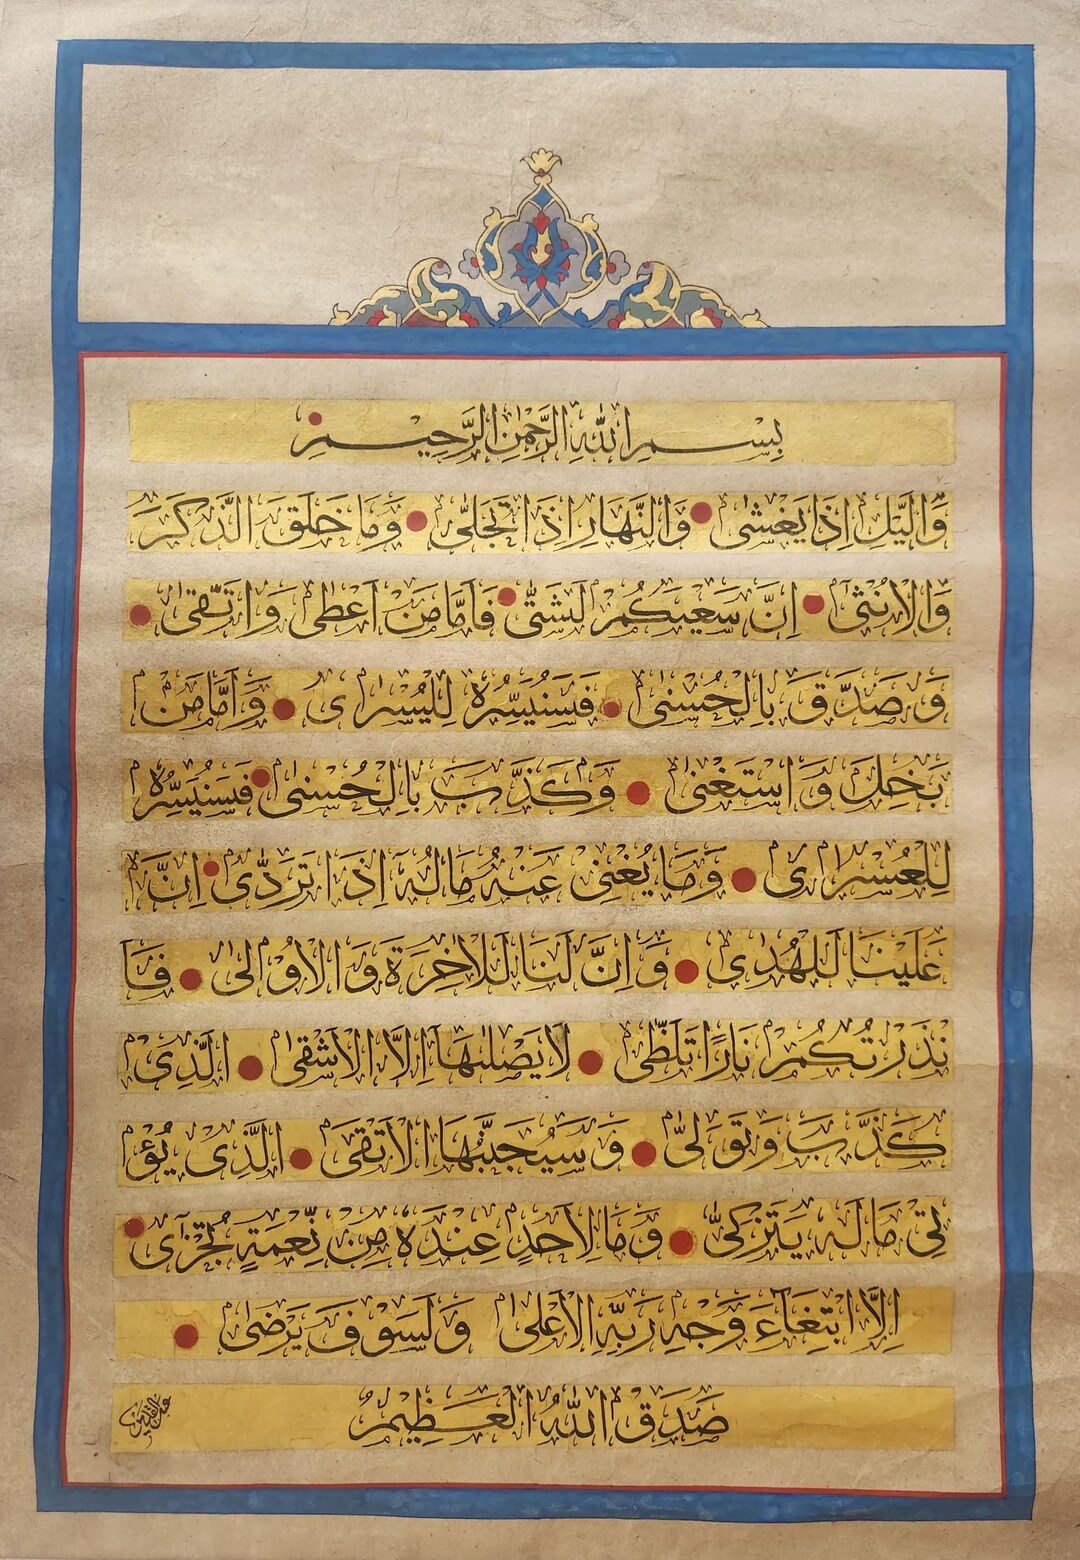 بِسْمِ اللّٰهِ الرَّحْمٰنِ الرَّحِيمِ
وَالَّيْلِ اِذَا يَغْشٰى وَالنَّهَارِ اِذَا تَجَلّٰى وَمَا خَلَقَ الذَّكَرَ
وَالْاُنْثٰى اِنَّ سَعْيَكُمْ لَشَتّٰى فَاَمَّا مَنْ اَعْطٰى وَاتَّقٰى
وَصَدَّقَ بِالْحُسْنٰى فَسَنُيَسِّرُهُ لِلْيُسْرٰى وَاَمَّا مَنْ
بَخِلَ وَاسْتَغْنٰى وَكَذَّبَ بِالْحُسْنٰى فَسَنُيَسِّرُهُ
لِلْعُسْرٰى وَمَا يُغْنِى عَنْهُ مَالُهُ اِذَا تَرَدّٰى اِنَّ
عَلَيْنَا لَلْهُدٰى وَاِنَّ لَنَا لَلْاٰخِرَةَ وَالْاُولٰى فَاَ
نْذَرْتُكُمْ نَارًا تَلَظّٰى لَا يَصْلٰيهَا اِلَّا الْاَشْقٰى الَّذِى
كَذَّبَ وَتَوَلّٰى وَسَيُجَنَّبُهَا الْاَتْقَى الَّذِى يُؤْ
تِى مَالَهُ يَتَزَكّٰى وَمَا لِاَحَدٍ عِنْدَهُ مِنْ نِعْمَةٍ تُجْزٰى
اِلَّا ابْتِغَاءَ وَجْهِ رَبِّهِ الْاَعْلٰى وَلَسَوْفَ يَرْضٰى
صَدَقَ اللّٰهُ الْعَظِيمُ